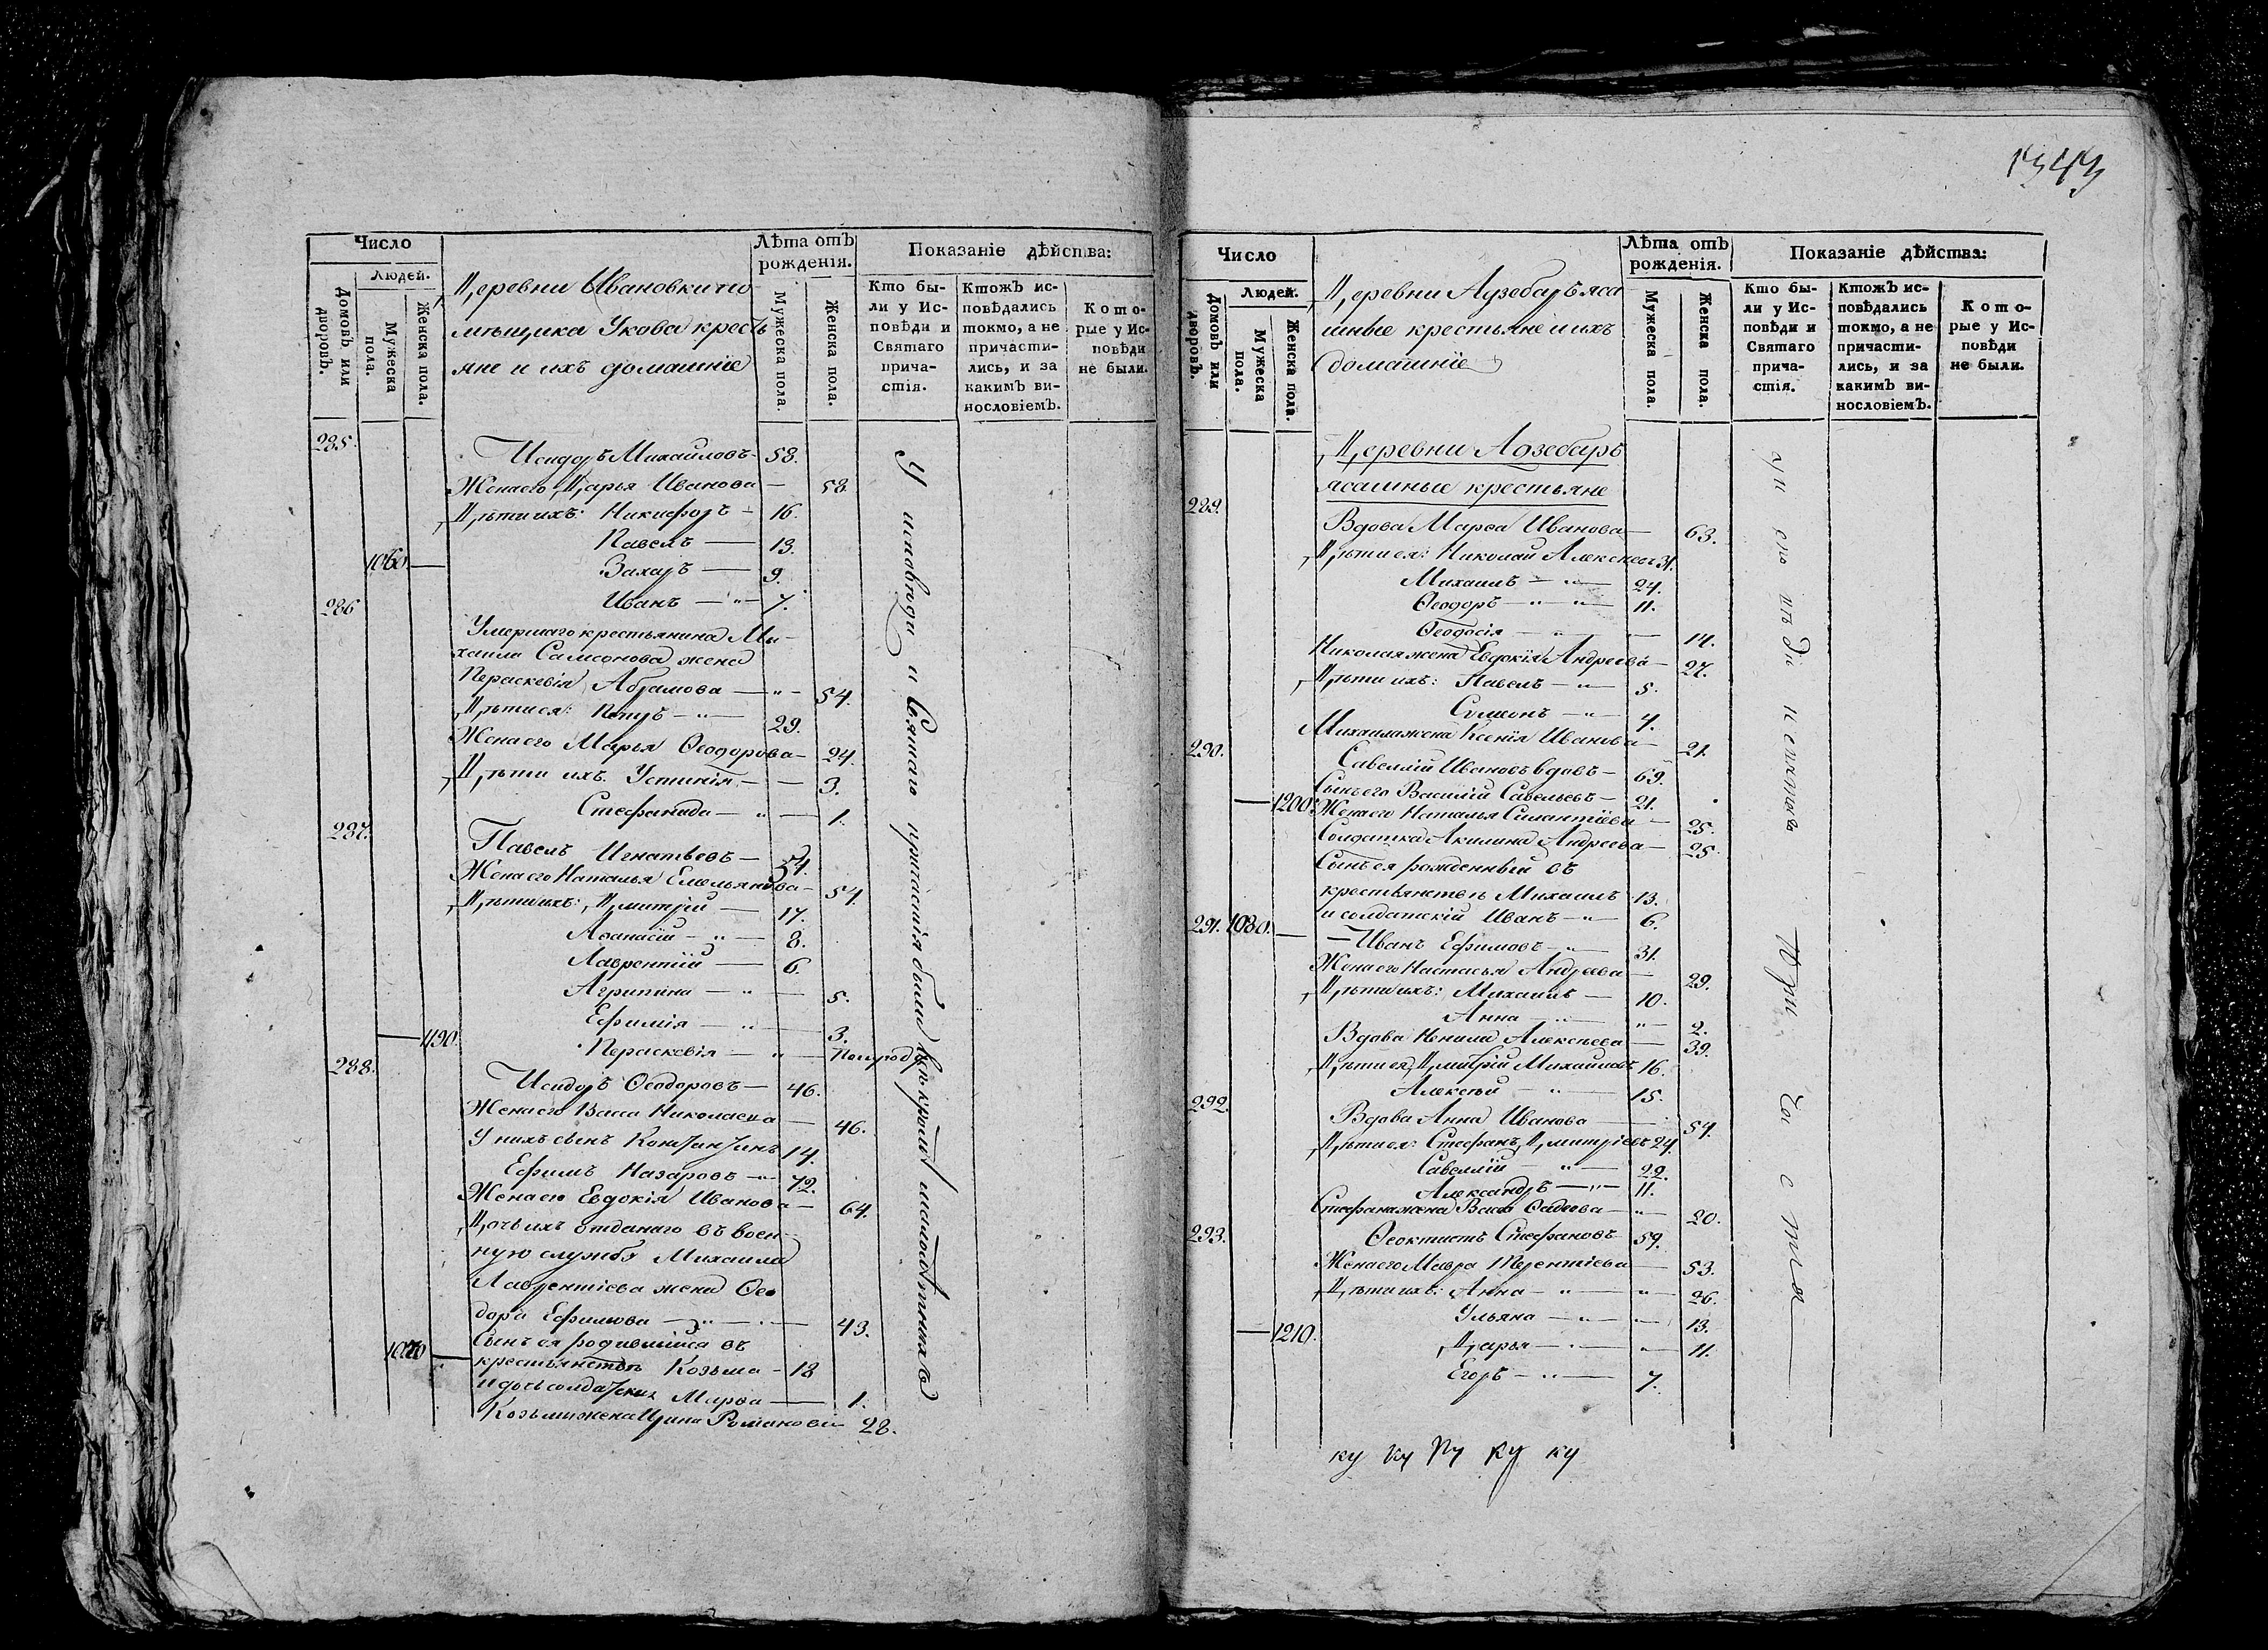 Число
Людей.
Домовъ или дворовъ.
Мужеска пола.
Женска пола.
Деревни Ивановки по
мѣщика Укова кресть
яне и ихъ домашніе
Лѣта отъ
рожденія.
Мужеска пола.
Женска пола.
Показаніе дѣйства:
Кто бы-
ли у Ис-
повѣди и
Святаго
прича-
стія.
Ктожъ ис-
повѣдались
токмо, а не
причасти-
лись, и за
какимъ ви-
нословіемъ.
Кото-
рые у Ис-
повѣди
не были.
285.
Исидоръ Михайловъ 58.
Жена его Дарья Иванова 58
Дѣти ихъ: Никифоръ 16.
Павелъ 13.
1060. Захаръ 9.
Иванъ 7.
286
Умершаго крестьянина Ми-
хаила Самсонова жена
Параскевія Абрамова 54.
Дѣти ея: Петръ 29.
Жена его Марья Ѳеодорова 24.
Дѣти ихъ. Устинія 3.
Стефанида 1.
287.
Павелъ Игнатьевъ 54.
Жена его Наталья Емельянова 54.
Дѣти ихъ: Димитрій 17.
Аѳанасій 8.
Лаврентій 6.
Агрипина 5.
Ефимія 3.
1190. Параскевія Полгода
288.
Исидоръ Ѳеодоровъ 46.
Жена его Васса Николаева 46.
У нихъ сынъ Константинъ 14.
Ефимъ Назаровъ 72.
Жена его Евдокія Иванова 64.
Дочь ихъ отданаго въ воен
ную службу Михаила
Лаврентіева жена Ѳео
дора Ефимова 43.
Сынъ ея родившійся въ
1070 крестьянствѣ Козьма 18
и дочь солдатская Марѳа 1.
Козьмы жена Ирина Романова 28.
У исповѣди и Святаго причастія были всѣ кромѣ малолѣтнихъ
1343
Число
Людей.
Домовъ или дворовъ.
Мужеска пола.
Женска пола.
Деревни Аузебаръ яса
шные крестьяне и ихъ
домашніе
Лѣта отъ
рожденія.
Мужеска пола.
Женска пола.
Показаніе дѣйства:
Кто бы-
ли у Ис-
повѣди и
Святаго
прича-
стія.
Ктожъ ис-
повѣдались
токмо, а не
причасти-
лись, и за
какимъ ви-
нословіемъ.
Кото-
рые у Ис-
повѣди
не были.
Деревни Аозебаръ
ясашные крестьяне
289.
Вдова Марѳа Иванова 63.
Дѣти ея: Николай Алексѣевъ 31.
Михаилъ 24.
Ѳеодоръ 11.
Ѳеодосія 14.
Николая жена Евдокія Андреева 27.
Дѣти ихъ: Павелъ 5.
Сѵмеонъ 4.
Михаила жена Ксенія Иванова 21.
290.
Савелій Ивановъ вдовъ 69.
Сынъ его Василій Савельевъ 21.
1200. Жена его Наталья 25.
Солдатка Акилина Андреева 25.
Сынъ ея рожденный въ
крестьянствѣ Михаилъ 13.
и солдатскій Иванъ 6.
291. 1080. Иванъ Ефимовъ 31.
Жена его Настасья Андреева 29.
Дѣти ихъ: Михаилъ 10.
Анна 2.
Вдова Ненила Алексѣева 39.
Дѣти ея, Димитрій Михайловъ 16.
Алексѣй 15.
292.
Вдова Анна Иванова 54.
Дѣти ея: Стефанъ Димитріевъ 24.
Савелій 22.
Александръ 11.
Стефана жена Васса 20.
293.
Ѳеоктистъ Стефановъ 59.
Жена его Мавра Терентіева 53.
Дѣти ихъ: Анна 26.
Ульяна 13.
1210. Дарья 11.
Егоръ 7.
ку ку ку ку